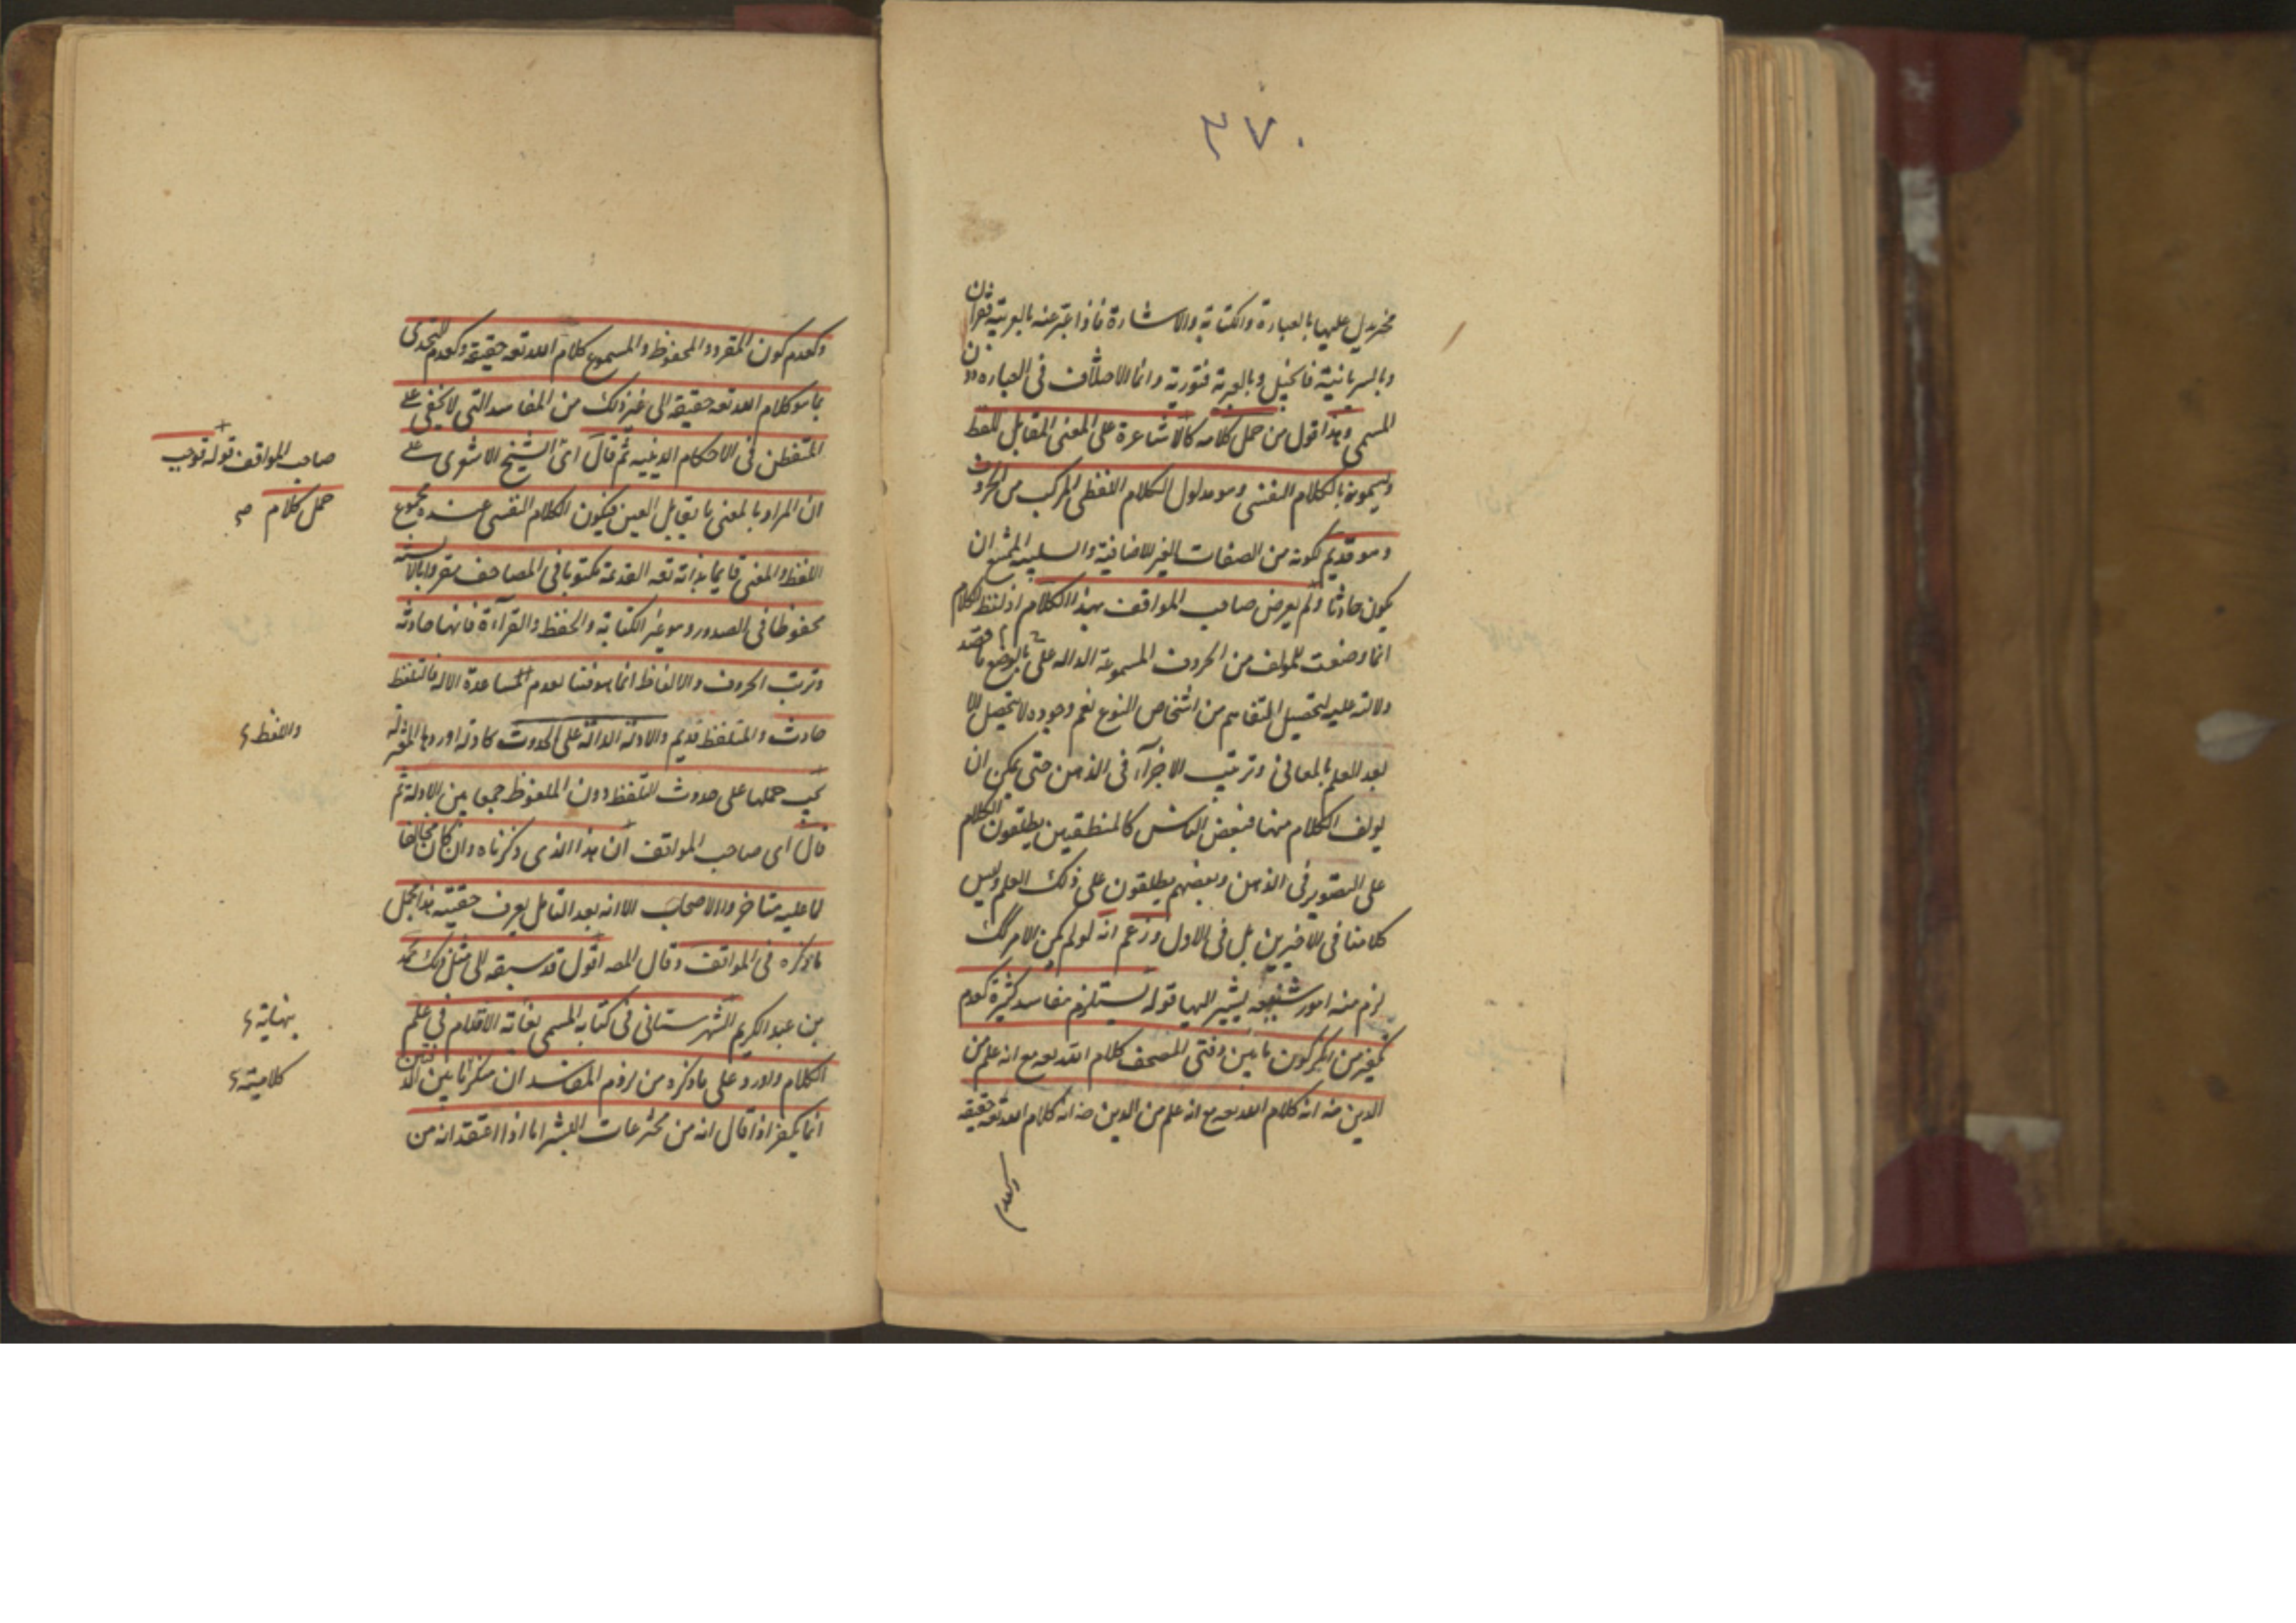 ٣٧٠
مخبر يدل عليها بالعبارة والكتابة والاشارة فاذا عبر عنه بالعربية فقرآن
وبالسريانية فانجيل وبالعبرية فتورية وانما الاختلاف فى العبارة دون
المسمى وهذا قول من حمل كلامه كالاشاعرة على المعنى المقابل للفظ
ويسمونه بالكلام النفسى وهو مدلول الكلام اللفظى المركب من الحروف
وهو قديم لكونه من الصفات الغير الاضافية والسلبية الممتنع ان
يكون حادثا ولم يعرض صاحب المواقف بهذا الكلام اذ لفظ الكلام
انما وضعت للمولف من الحروف المسموعة الدالة على بالوضع ما قصد
دلالته عليه لتحصيل التفاهم من اشخاص النوع نعم وجوده لا يتحصل الا
بعد العلم بالمعانى وترتيب الاجزآء فى الذهن حتى يمكن ان
يولف الكلام منها فبعض الناس كالمنطقيين يطلقون الكلام
على التصوير فى الذهن وبعضهم يطلقون على ذلك العلم وليس
كلامنا فى الاخيرين بل فى الاول وزعم انه لو لم يكن الامر كك
لزم منه امور شنيعة يشير اليها قوله يستلزم مفاسد كثيرة كعدم
تكفير من انكر كون ما بين دفتى المصحف كلام الله تعه مع انه علم من
الدين منه انه كلام الله تعه مع انه علم من الدين ضه انه كلام الله تعه حقيقه
وكعدم
وكعدم كون المقروء والمحفوظ والمسموع كلام الله تعه حقيقة وكعدم التحدى
بما هو كلام الله تعه حقيقة الى غير ذلك من المفاسد التى لا تخفى على
المتفطن فى الاحكام الدينيه ثم قال اى الشيخ الاشعرى على
ان المراد بالمعنى ما يقابل العين فيكون الكلام النفسى عنده مجموع
اللفظ والمعنى قايما بذاته تعه القديمة مكتوبا فى المصاحف مقروا بالالسنه
محفوظا فى الصدور وهو غير الكتابة والحفظ والقرآءة فانها حادثه
وترتب الحروف والالفاظ انما هو فينا لعدم المساعدة الالة فالتلفظ
حادث والمتلفظ قديم والادلة الدالة على الحدوث كادلة اوردها المعتزله
يجب حملها على حدوث التلفظ دون الملفوظ جمعا بين الادلة ثم
قال اى صاحب المواقف ان هذا الذى ذكرناه وان كان مخالفا
لما عليه متاخروا الاصحاب الا انه بعد التامل يعرف حقيته هذا مجمل
ما ذكره فى المواقف وقال المصه اقول قد سبقه الى مثل ذلك محمد
بن عبد الكريم الشهرستانى فى كتابه المسمى بغاية الاقلام فى علم
الكلام واورد على ما ذكره من لزوم المفاسد ان منكر ما بين الدفتين
انما يكفر اذا قال انه من مخترعات البشر اما اذا اعتقد انه من
صاحب المواقف قوله توجب
حمل كلام صح
واللفظ
نهاية
كلاميته